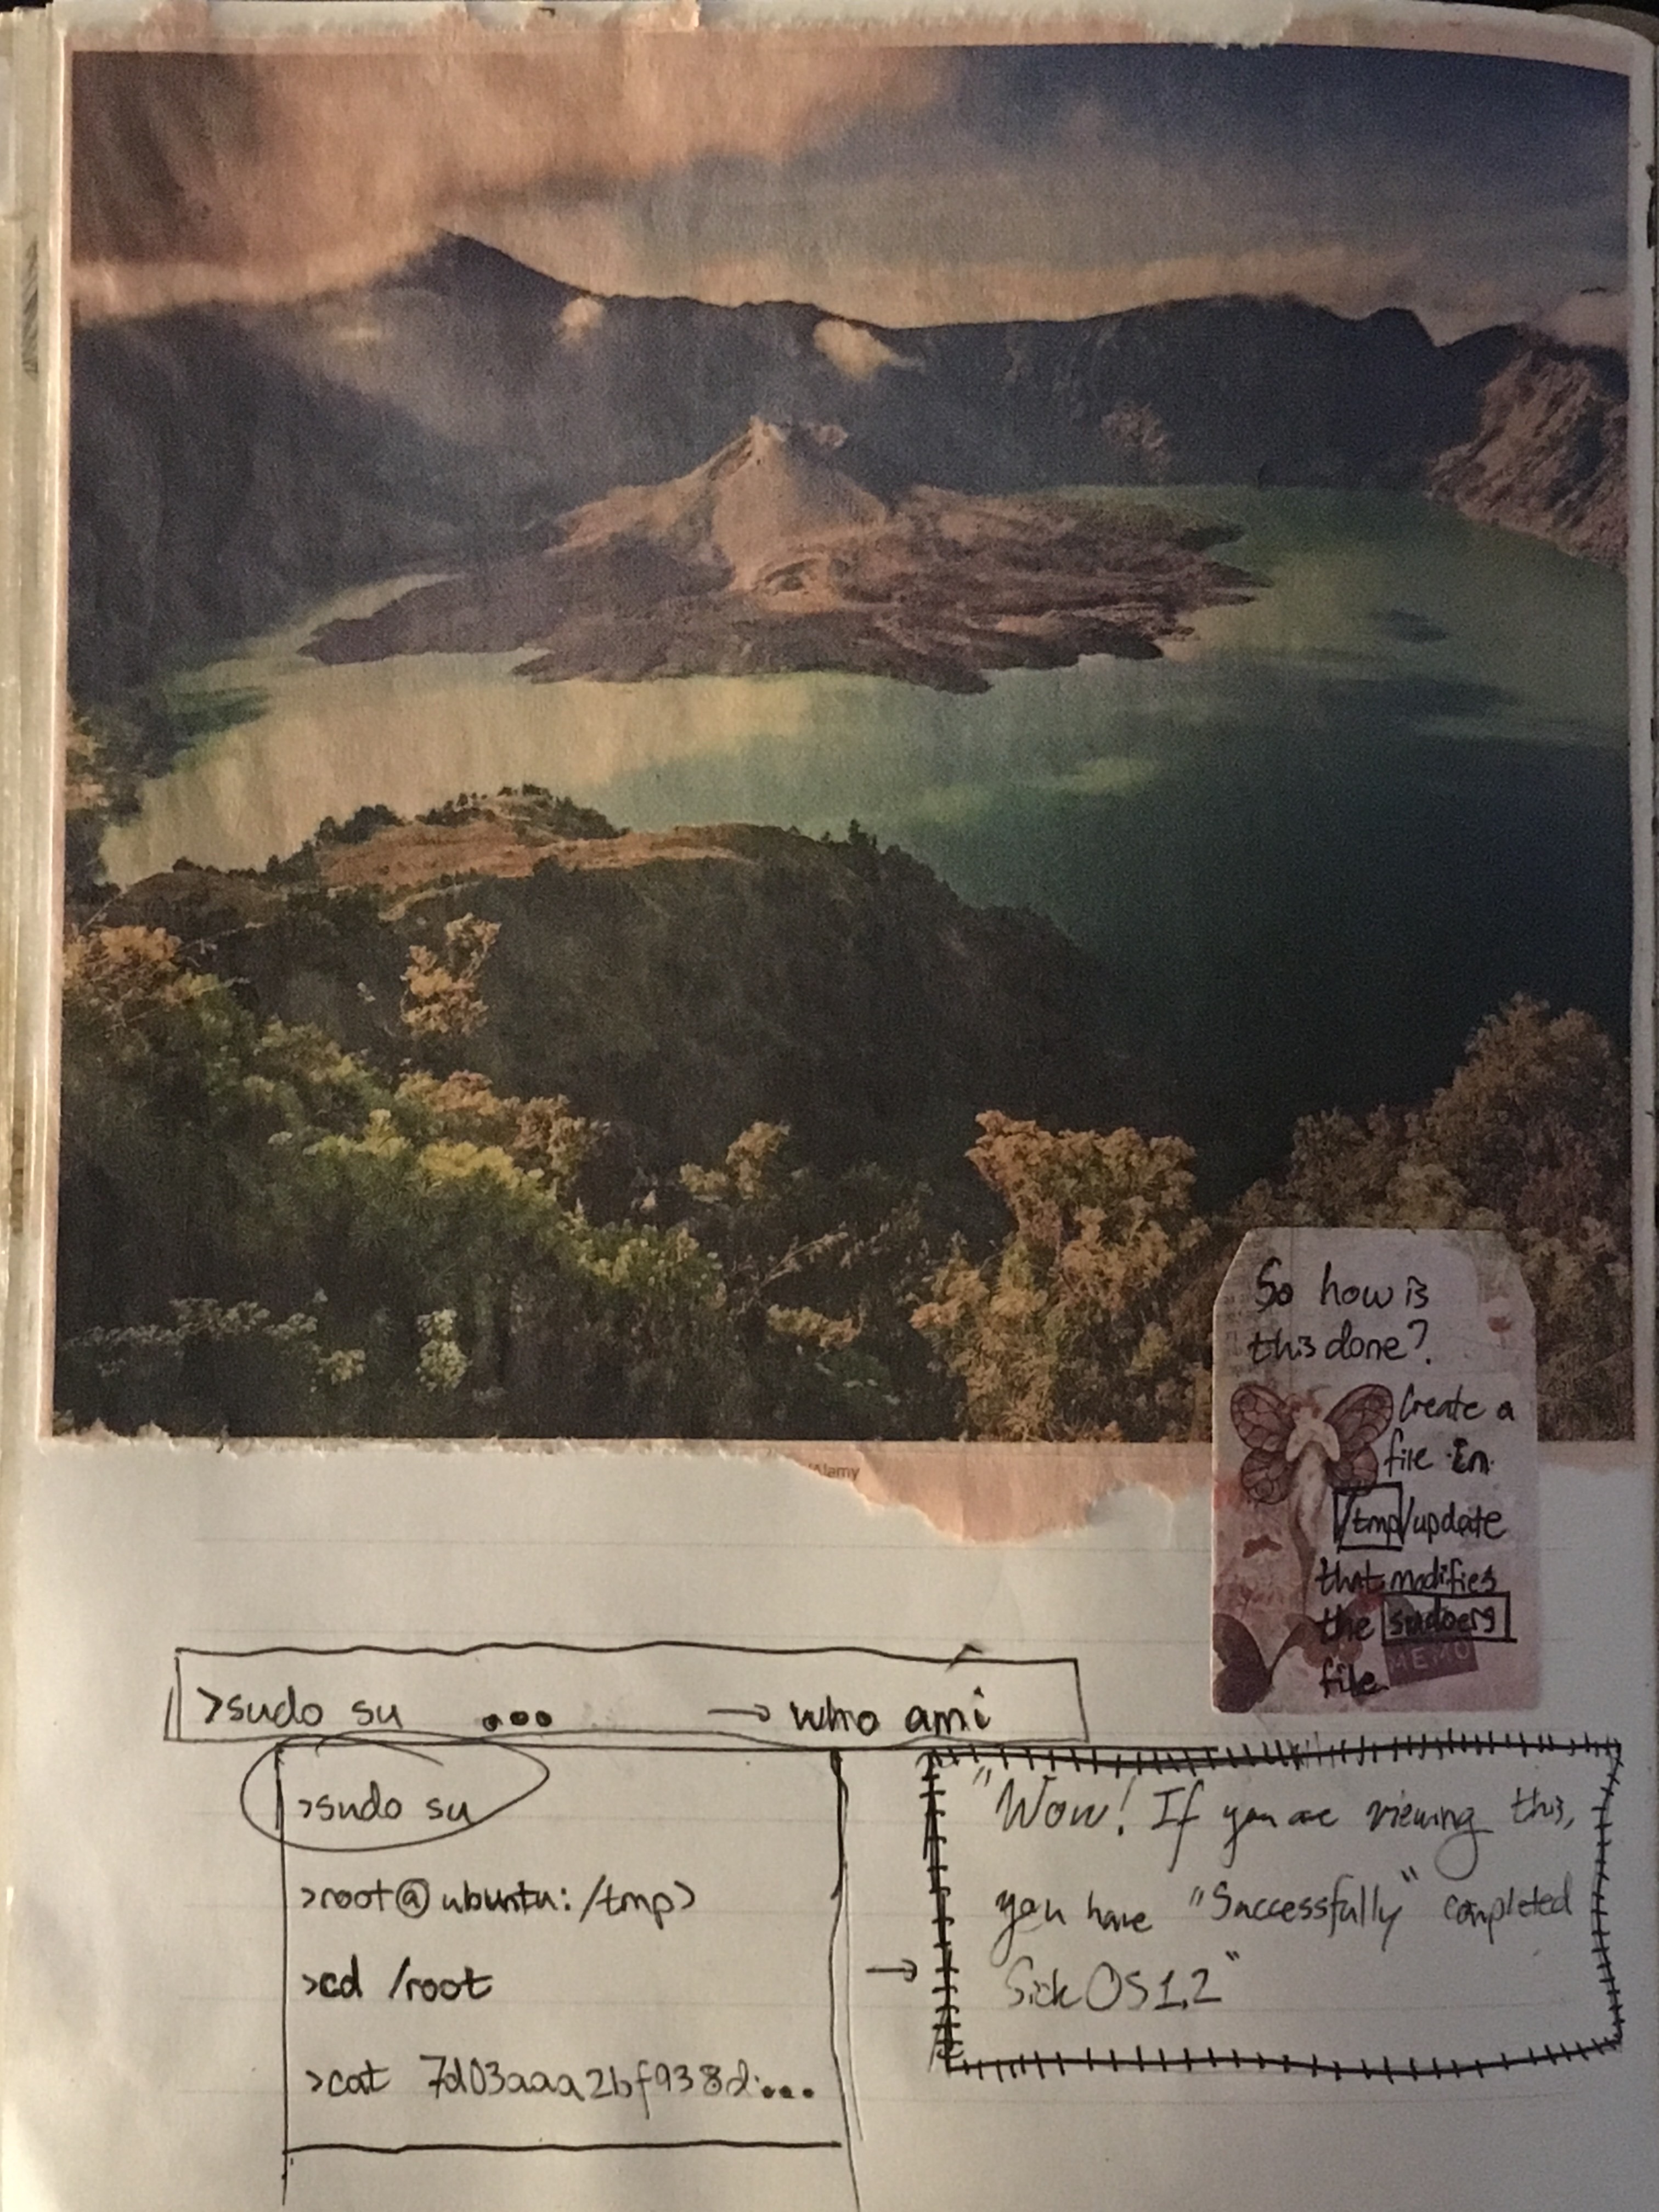 So how is
this done?
Create a
file in
/tmp/update
that modifies
the sudoers
file.
MEMO
/Alamy
>sudo su ... → who ami
>sudo su
>root@ubuntu:/tmp>
>cd /root
>cat 7d03aaa2bf938d...
→
"Wow! If you are viewing this,
you have "Successfully" completed
SickOS1.2"